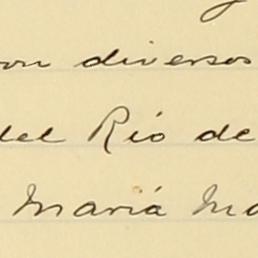 on diversos
del Río de
María Ma